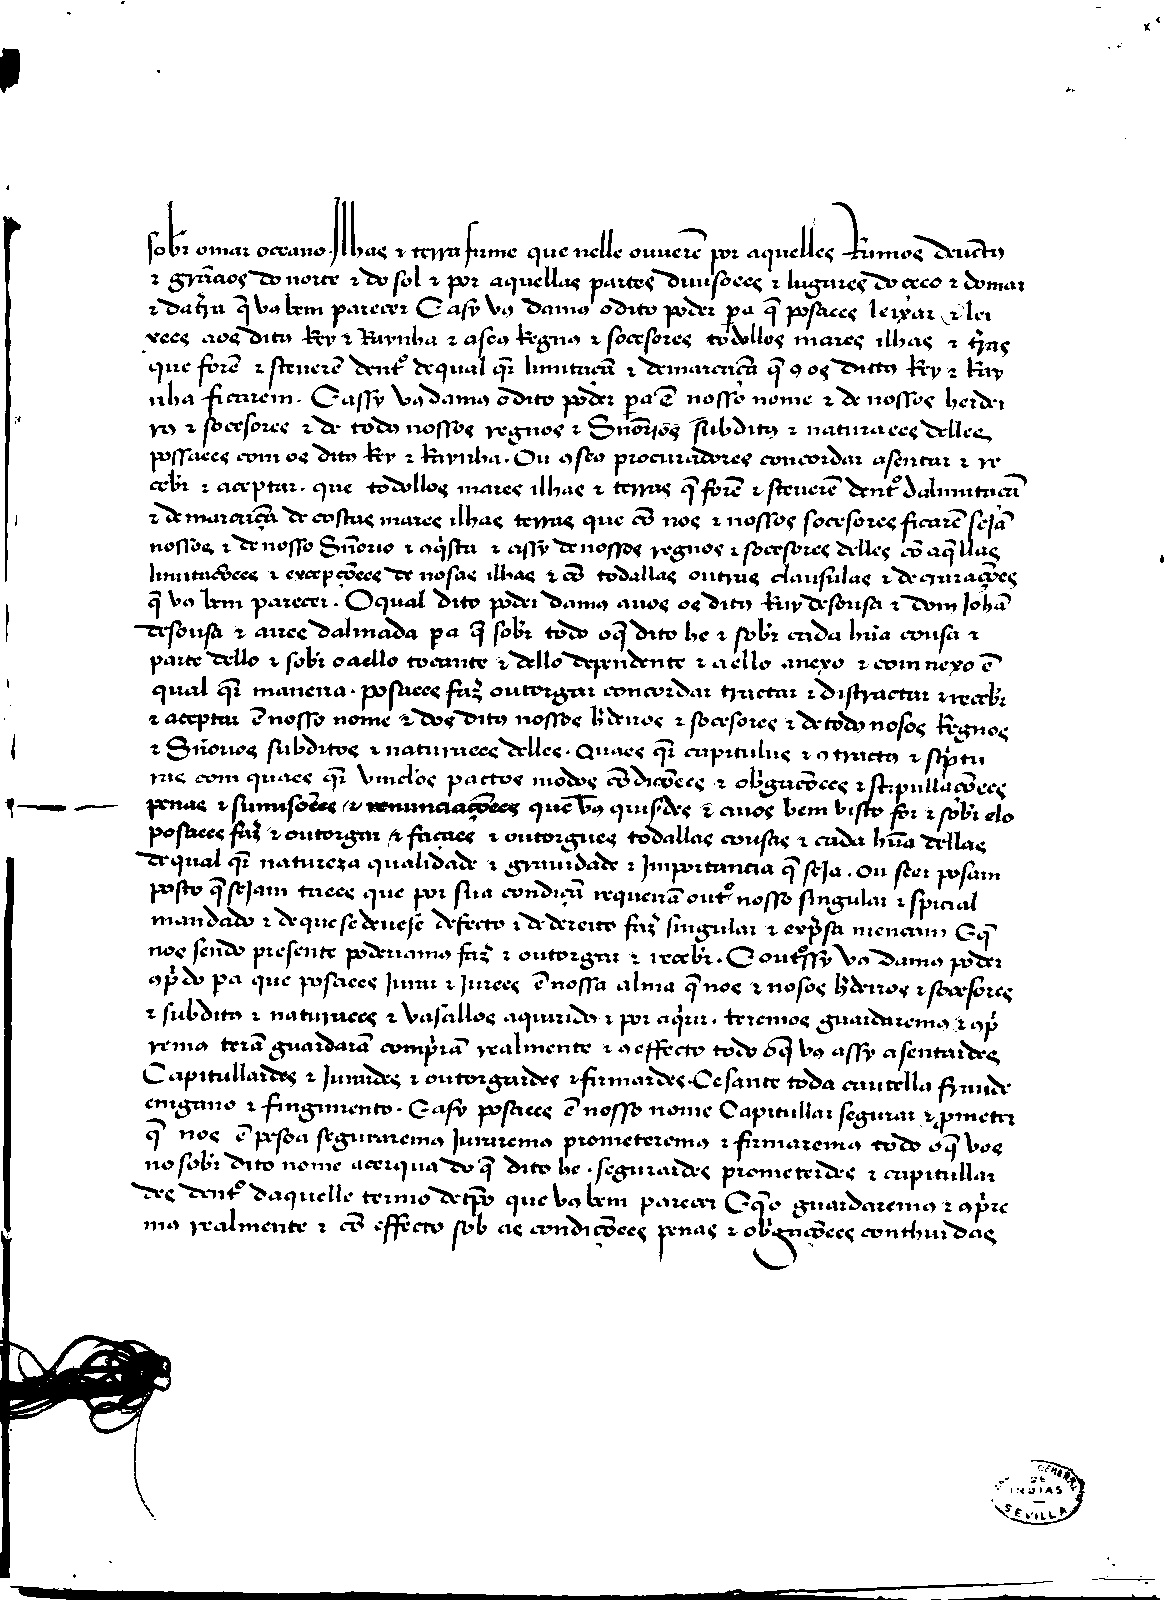 sobr̃ o mar oceano. Ilhas & terra firme que nelle ouverẽ por aquelles Rumos de vẽtos
& gr̃aaos do norte & do sol & por aquellas partes divisoẽes & lugares do ceeo & do mar
& da tr̃ra q̃ vos bem parecer E asy vos damos o dito poder p̃a q̃ posaaes leixar & lei
xees aos ditos Rey & Raynha & a seos Regnos & socesores todollos mares ilhas & tr̃ras
que forẽ & steverẽ dent.º de qual qr̃ limitaçã & demarcaçã q̃ 9 os dittos Rey & Ray
nha ficarem. E assy vos damos o dito poder p̃a ẽ nosso nome & de nossos herdei
ros & socesores & de todos nossos regnos & Sñorios subditos & naturaees delles
possaees com os ditos Rey & Raynha. Ou 9 seos procuradores concordar asentar & re
cebr̃ & aceptar. que todollos mares ilhas & terras q̃ forẽ & steverẽ dent.º da limitaçã
& demarcaçã de costas mares ilhas terras que cõ nos & nossos socesores ficarẽ sejã
nossos & de nosso Sñorio & 9q̃sta & assy de nossos regnos & socesores delles cõ aq̃llas
limitaçõees & exepçõees de nosas ilhas & cõ todallas outras clausulas & decraraçõees
q̃ vos bem parecer. O qual dito poder damos a vos os ditos Ruy de sousa & dom Johã
de sousa & aires dalmada p̃a q̃ sobr̃ todo o q̃ dito he & sobr̃ cada hũa cousa &
parte dello & sobr̃ o a ello tocante & dello dependente & a ello anexo & comnexo ẽ
qual qr̃ maneira. posaaes faz̃ outorgar concordar tractar & distractar & recebr̃
& aceptar ẽ nosso nome & dos ditos nossos h̃deiros & socesores & de todos nosos Regnos
& Sñorios subditos & naturaees delles. Quaes qr̃ capitulos & 9tractos & scp̃tu
ras com quaes qr̃ vinclos pactos modos cõdiçõees & obr̃gaçõees & stipullaçõees
penas & sumisoẽes & renunciaçõees que vos quisrdes & a vos bem visto for & sobr̃ elo
posaaes faz̃ & outorgar & façaes & outorgues todallas cousas & cada hũa dellas
de qual qr̃ natureza qualidade & gravidade & Importancia q̃ seja. Ou seer posam
posto q̃ sejam taees que por sua condiçã requeirã out.º nosso singular & spicial
mandado & de que se devese de fecto & de dereito faz̃ singular & exp̃sa mençam E q̃
nos sendo presente poderiamos faz̃ & outorgar & recebr̃. E outº̃sy vos damos poder
9p̃do p̃a que posaaes Jurar & Jurees ẽ nossa alma q̃ nos & nosos h̃deiros & socesores
& subditos & naturaees & vasallos aquirido & por aq̃rir. teremos guardaremos & 9p̃
remos terã guardarã comp̃rã realmente & 9 effecto todo o q̃ vos assy asentardes
Capitullardes & Jurardes & outorgardes & firmardes. Cesante toda cautella fraude
emgano & fingimento. E asy posaaes ẽ nosso nome Capitullar segurar & p̃meter
q̃ nos ẽ pesoa seguraremos Juraremos prometeremos & firmaremos todo o q̃ vos
no sobr̃ dito nome acerqua do q̃ dito he. segurardes prometerdes & capitullar
des dent.º daquelle termo de tp̃o que vos bem parecer E q̃ o guardaremos & 9p̃re
mos realmente & cõ effecto sob as condiçõees penas & obr̃gaçõees conthiudas
GENERAL
DE
INDIAS
SEVILLA